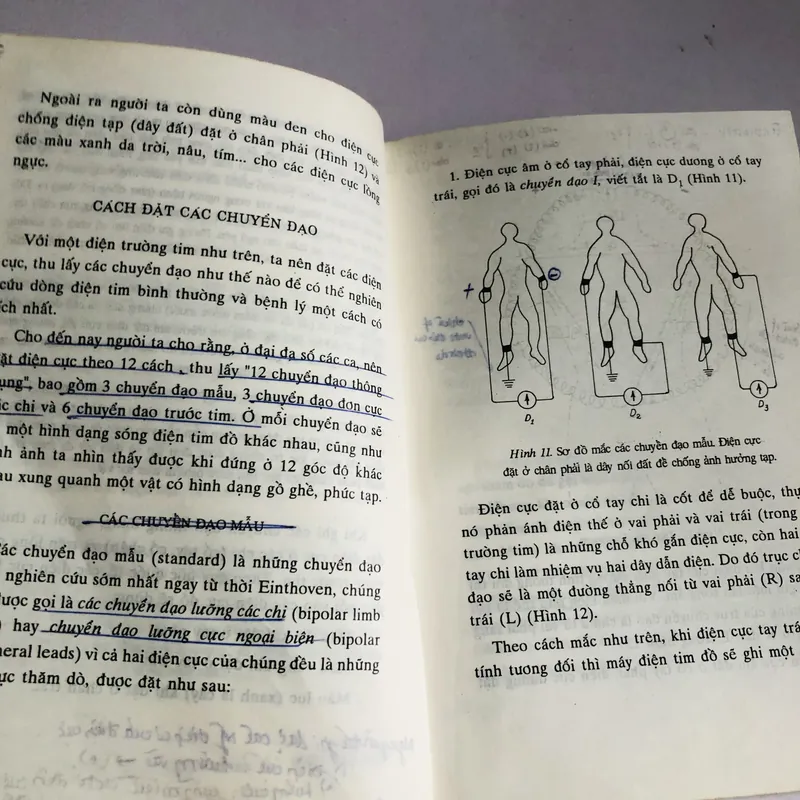 Ngoài ra người ta còn dùng màu đen cho điện cực
chống điện tạp (dây đất) đặt ở chân phải (Hình 12) và
các màu xanh da trời, nâu, tím... cho các điện cực lồng
ngực.
CÁCH ĐẶT CÁC CHUYỂN ĐẠO
Với một điện trường tim như trên, ta nên đặt các điện
cực, thu lấy các chuyển đạo như thế nào để có thể nghiên
cứu dòng điện tim bình thường và bệnh lý một cách có
ích nhất.
Cho đến nay người ta cho rằng, ở đại đa số các ca, nên
đặt điện cực theo 12 cách, thu lấy "12 chuyển đạo thông
dụng", bao gồm 3 chuyển đạo mẫu, 3 chuyển đạo đơn cực
các chi và 6 chuyển đạo trước tim. Ở mỗi chuyển đạo sẽ
một hình dạng sóng điện tim đồ khác nhau, cũng như
ảnh ta nhìn thấy được khi đứng ở 12 góc độ khác
xung quanh một vật có hình dạng gồ ghề, phức tạp.
CÁC CHUYỂN ĐẠO MẪU
Các chuyển đạo mẫu (standard) là những chuyển đạo
nghiên cứu sớm nhất ngay từ thời Einthoven, chúng
được gọi là các chuyển đạo lưỡng các chi (bipolar limb
) hay chuyển đạo lưỡng cực ngoại biên (bipolar
heral leads) vì cả hai điện cực của chúng đều là những
cực thăm dò, được đặt như sau:
1. Điện cực âm ở cổ tay phải, điện cực dương ở cổ tay
trái, gọi đó là chuyển đạo I, viết tắt là D1 (Hình 11).
+
D1
D2
D3
Hình 11. Sơ đồ mắc các chuyển đạo mẫu. Điện cực
đặt ở chân phải là dây nối đất để chống ảnh hưởng tạp.
Điện cực đặt ở cổ tay chỉ là cốt để dễ buộc, thự
nó phản ánh điện thế ở vai phải và vai trái (trong
trường tim) là những chỗ khó gắn điện cực, còn hai
tay chỉ làm nhiệm vụ hai dây dẫn điện. Do đó trục ch
đạo sẽ là một đường thẳng nối từ vai phải (R) sa
trái (L) (Hình 12).
Theo cách mắc như trên, khi điện cực tay trá
tính tương đối thì máy điện tim đồ sẽ ghi một